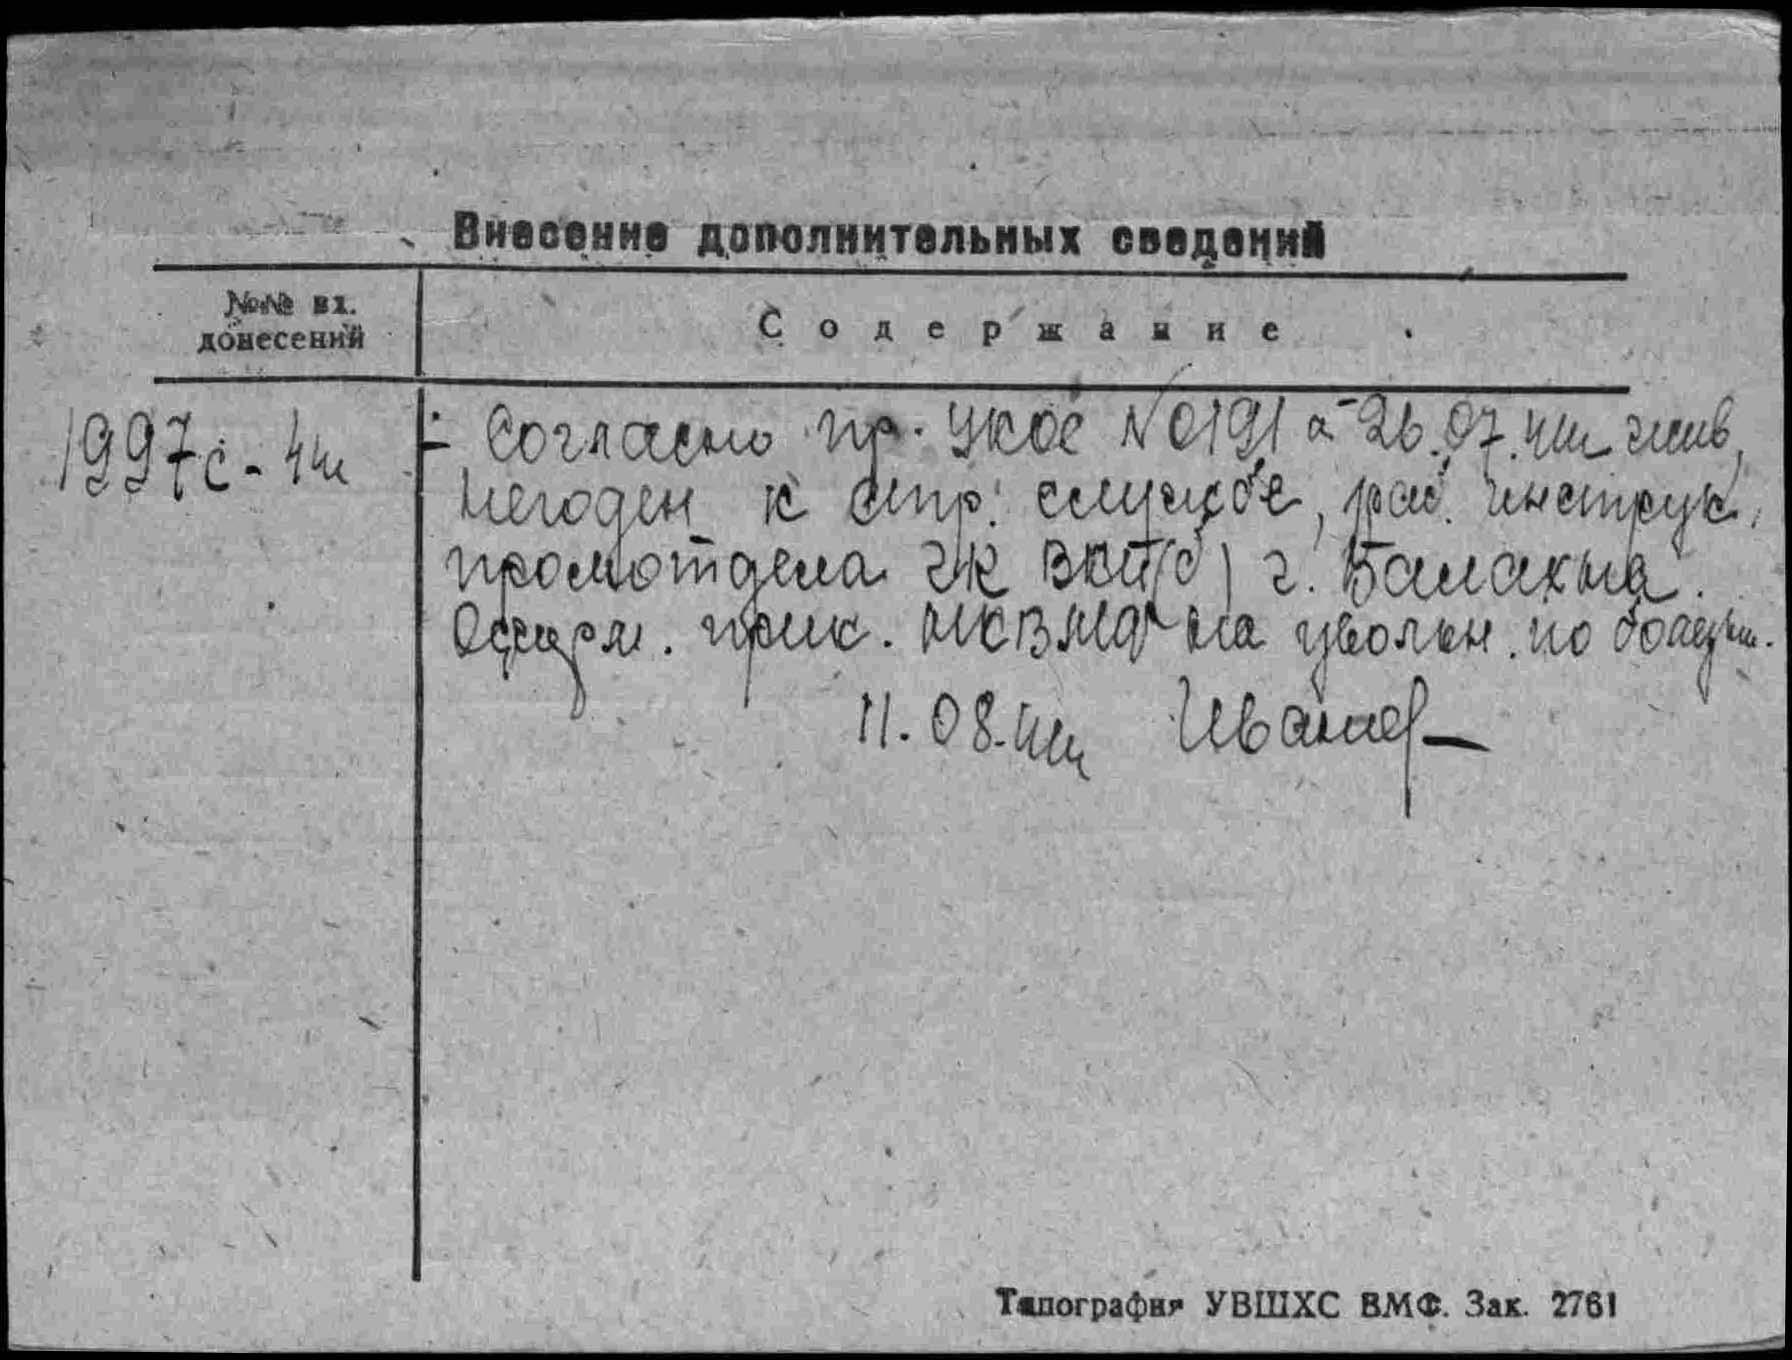 Внесение дополнительных сведений
№№ вх.
донесений
Содержание
1997с-44г
- Согласно пр. УКОС №0191 от 26.07.44г жив,
негоден к стр. службе, раб. инструк.
промотдела ГК ВКП(б) г. Балахна.
Оформ. прик. НКВМФ на увольн. по болезни.
11.08.44г Иванов
Типография УВШХС ВМФ. Зак. 2761